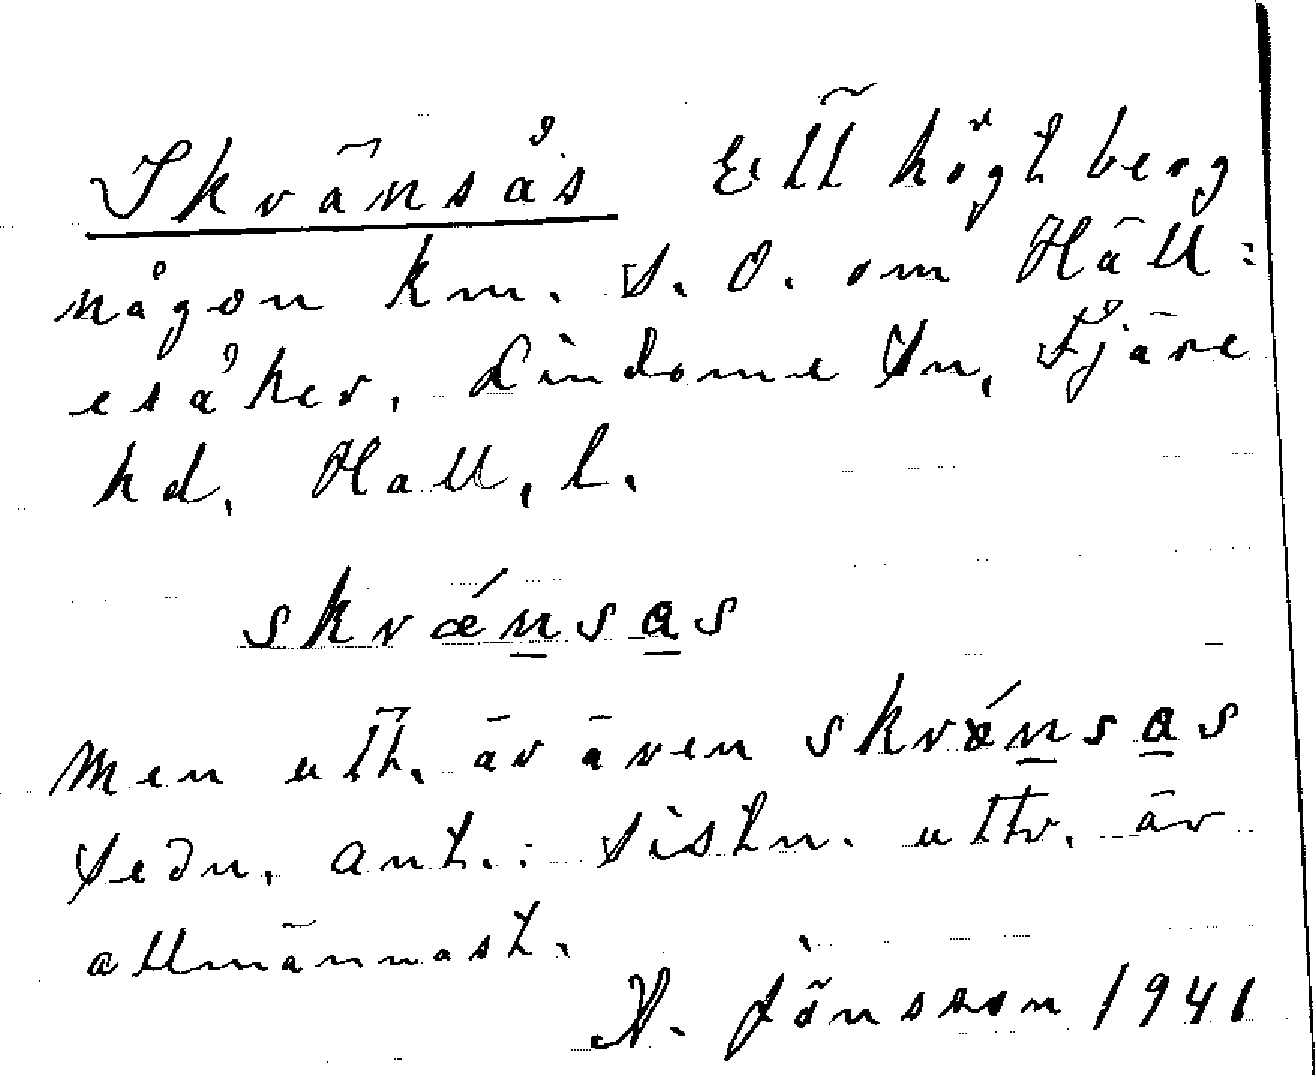 Skränsås Ett högt berg
någon km. S. O. om Häll=
esåker, Lindome Sn, Fjäre
hd, Hall, l.
skrǽnsas
Men utt. är även skrǽnsas
Sedn. ant.: Sistn. uttr. är
allmännast.
N. Jönsson 1941